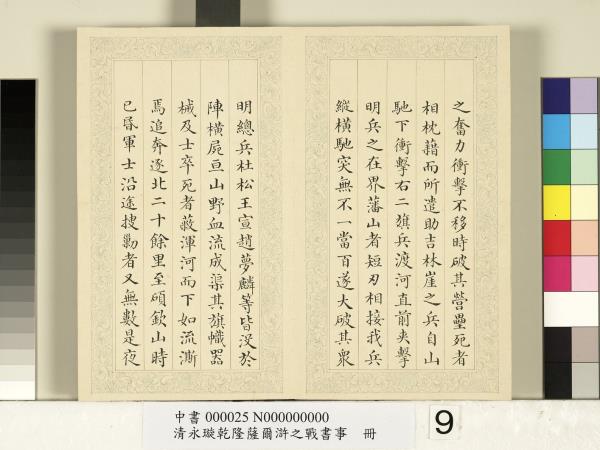 之奮力衝擊不移時破其營壘死者
相枕藉而所遣助吉林崖之兵自山
馳下衝擊右二旗兵渡河直前夾擊
明兵之在界藩山者短刃相接我兵
縱橫馳突無不一當百遂大破其眾
明總兵杜松王宣趙夢麟等皆沒於
陣橫屍亘山野血流成渠其旗幟器
械及士卒死者蔽渾河而下如流澌
焉追奔逐北二十餘里至碩欽山時
已昏軍士沿途搜勦者又無數是夜
中書 000025 N000000000
清永璇乾隆薩爾滸之戰書事 冊
9